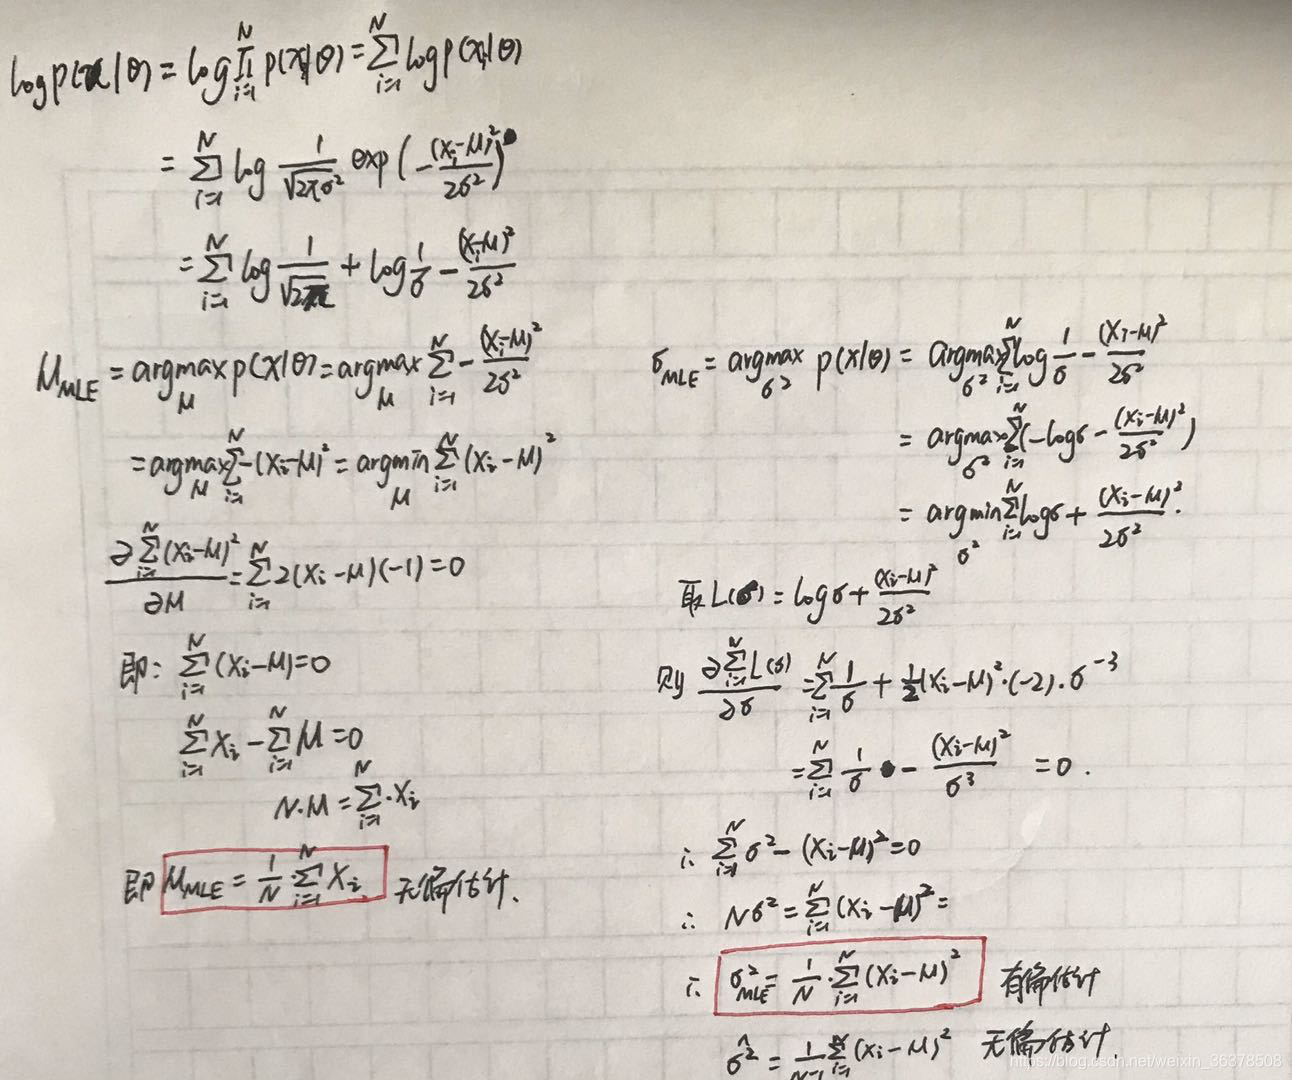 log p(x|θ) = log ∏_{i=1}^{N} p(x_i|θ) = ∑_{i=1}^{N} log p(x_i|θ)
= ∑_{i=1}^{N} log 1/√(2πσ²) exp(-(x_i-μ)²/2σ²)
= ∑_{i=1}^{N} log 1/√(2π) + log 1/σ - (x_i-μ)²/2σ²
μ_MLE = argmax_μ p(x|θ) = argmax_μ ∑_{i=1}^{N} - (x_i-μ)²/2σ²
= argmax_μ ∑_{i=1}^{N} -(x_i-μ)² = argmin_μ ∑_{i=1}^{N} (x_i-μ)²
∂∑_{i=1}^{N}(x_i-μ)²/∂μ = ∑_{i=1}^{N} 2(x_i-μ)(-1) = 0
即: ∑_{i=1}^{N} (x_i-μ)=0
∑_{i=1}^{N} x_i - ∑_{i=1}^{N} μ = 0
N·μ = ∑_{i=1}^{N}·x_i
即 μ_MLE = 1/N ·∑_{i=1}^{N} x_i 无偏估计.
σ_MLE = argmax_{σ²} p(x|θ) = argmax_{σ²} ∑_{i=1}^{N} log 1/σ - (x_i-μ)²/2σ²
= argmax_{σ²} ∑_{i=1}^{N} (-logσ - (x_i-μ)²/2σ²)
= argmin_{σ²} ∑_{i=1}^{N} logσ + (x_i-μ)²/2σ².
取 L(σ) = logσ + (x_i-μ)²/2σ²
则 ∂∑_{i=1}^{N} L(σ)/∂σ = ∑_{i=1}^{N} 1/σ + 1/2(x_i-μ)²·(-2)·σ^{-3}
= ∑_{i=1}^{N} 1/σ - (x_i-μ)²/σ³ = 0.
∴ ∑_{i=1}^{N} σ² - (x_i-μ)² = 0
∴ Nσ² = ∑_{i=1}^{N} (x_i-μ)² =
∴ σ²_MLE = 1/N ·∑_{i=1}^{N} (x_i-μ)² 有偏估计
σ̂² = 1/(N-1) ∑_{i=1}^{N} (x_i-μ)² 无偏估计.
https://blog.csdn.net/weixin_36378508